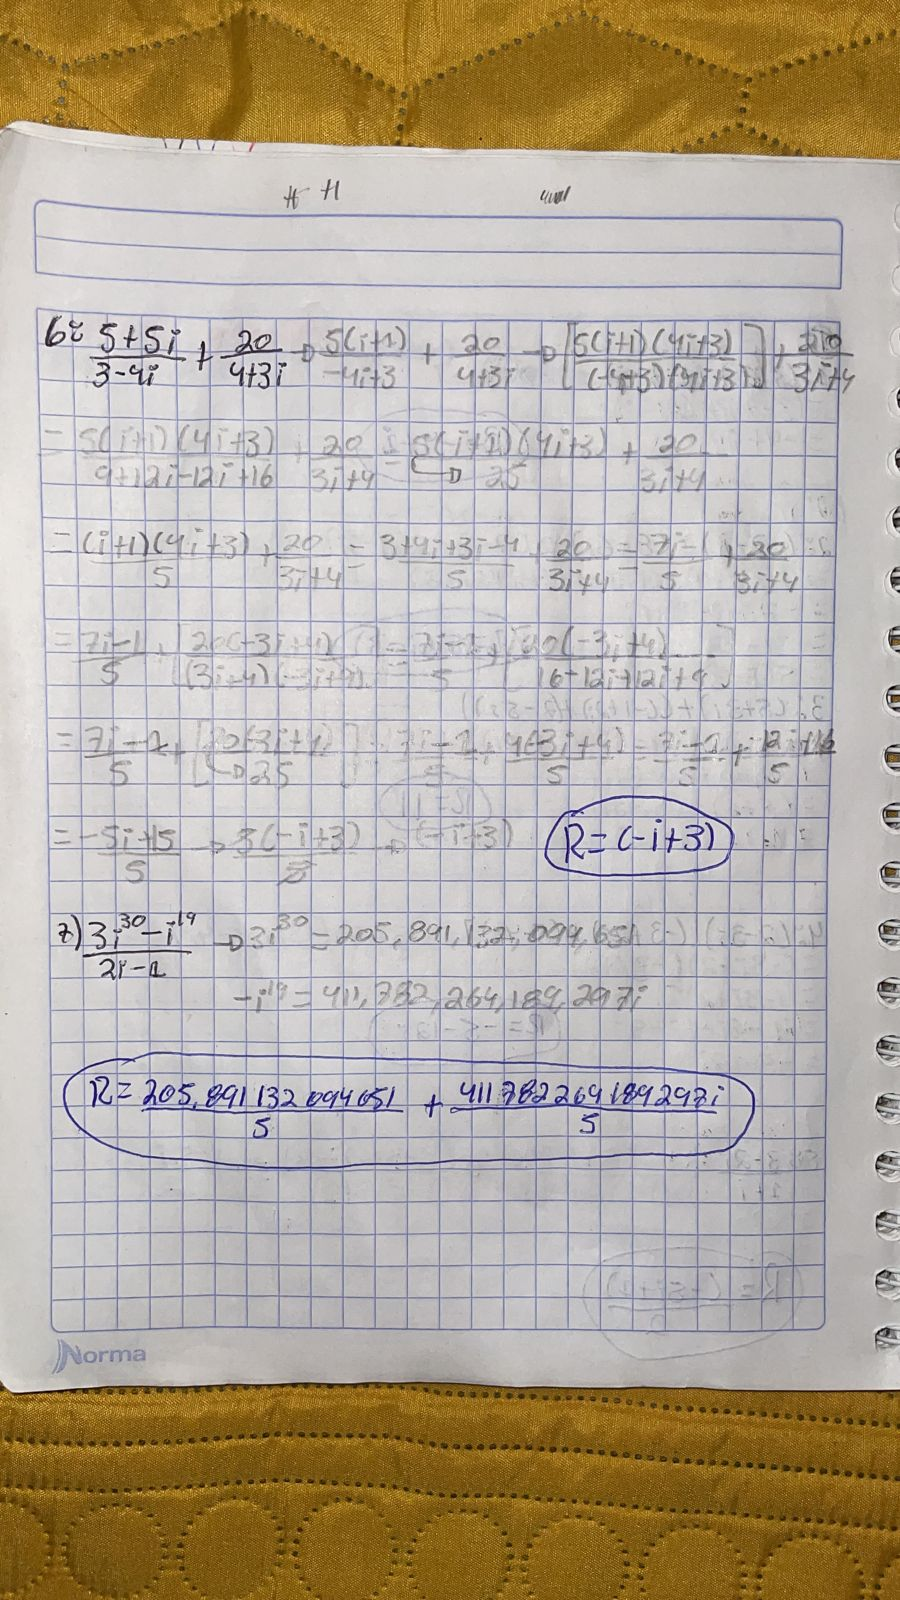 6. 5+5i/3-4i + 20/4+3i → 5(i+1)/-4i+3 + 20/4+3i → [5(i+1)(4i+3)/(-4i+3)(4i+3)] + 20/3i+4
= 5(i+1)(4i+3)/9+12i-12i+16 + 20/3i+4 = 5(i+1)(4i+3)/25 + 20/3i+4
= (i+1)(4i+3)/5 + 20/3i+4 = 3+4i+3i-4/5 + 20/3i+4 = 7i-/5 + 20/3i+4
= 7i-1/5 + [20(-3i+4)/(3i+4)(-3i+4)] = 7i-1/5 + [20(-3i+4)/16-12i+12i+9]
= 7i-1/5 + [20(3i+4)/25] 7i-1/5 + 4(-3i+4)/5 = 7i-1/5 + 12i+16/5
= -5i+15/5 → 5(-i+3)/5 → (-i+3) R=(-i+3)
7) 3i³⁰-i¹⁹/2i-1 → 3i³⁰ = 205,891,132,094,651
-i¹⁹ = 411,782,264,189,297i
R= 205,891132094651/5 + 411782264189297i/5
Norma